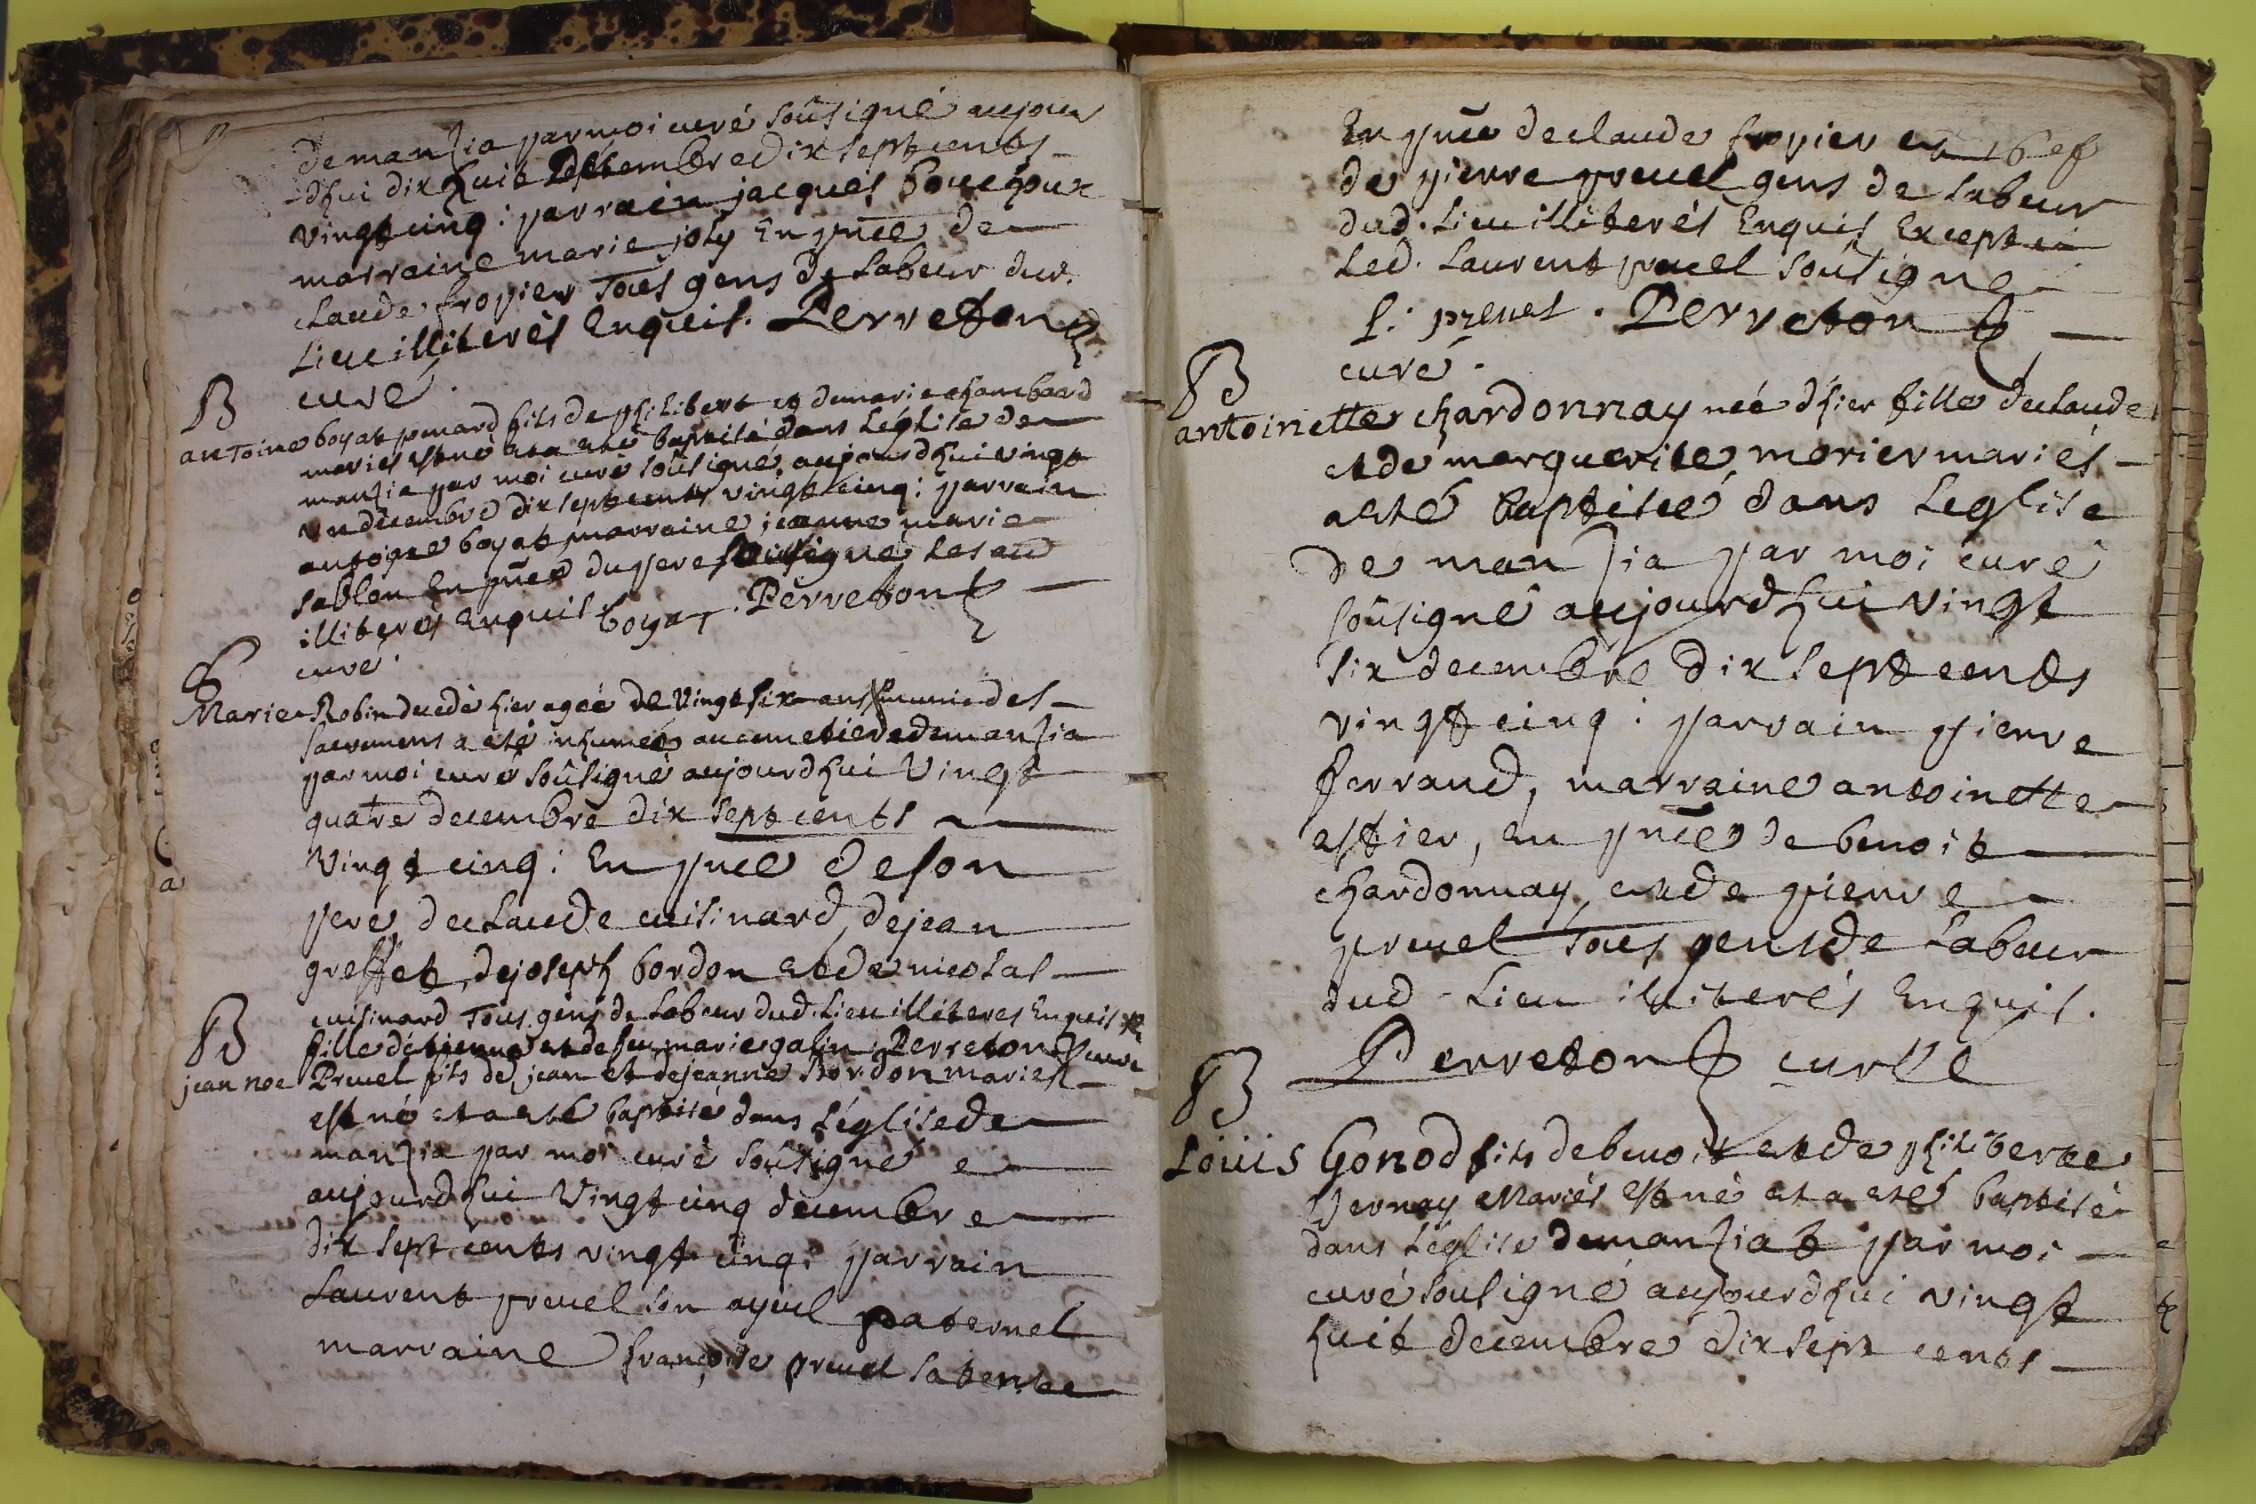 de manzia par moi curé soûsigné aujour
-dhui dix huit decembre dix sept cents
vingt cinq: parrain jacques bouchoux
marraine marie joly En pnce de
claude fropier Tous gens de Labeur dud.
Lieu illiterés Enquis. Perreton
curé.
B
antoine boyat penard fils de philibert et de marie chambaard
mariés est né et a eté baptisé dans Léglise de
manzia par moi curé soûsigné aujourdhui vingt
un decembre dix sept cents vingt cinq: parrain
antoine boyat, marraine jeanne marie
sablon En pnce du pere soûsigné les aud
illiterés Enquis boyat. Perreton
curé.
Marie Robin decedé hier ageé de vingt six ans munie des
sacremens a eté inhumeé au cimetiere de manzia
par moi curé soûsigné aujourdhui vingt
quatre decembre dix sept cents
vingt cinq: En pnce de son
pere, de claude cuisinard, de jean
greffet, de joseph bordon et de nicolas
cuisinard Tous gens de Labeur dud. Lieu illiteres Enquis
fille detienne et de feu marie galin. Perreton curé
B
jean noe Preuel fils de jean et de jeanne Bordon mariés
est né et a eté baptisé dans Léglise de
manzia par moi curé soûsigné
aujourdhui Vingt cinq decembre
dix sept cents vingt cinq: parrain
Laurent preuel son ayeul paternel
marraine françoise preuel sa tente
En pnce de claude fropier et
de pierre preuel gens de Labeur
dud. Lieu illiterés Enquis Excepté
Led. Laurent preuel soûsigne
l: preuel. Perreton
curé.
B
antoinette chardonnay neé dhier fille de claude
et de marguerite morier mariés
a eté baptiseé dans Leglise
de manzia par moi curé
soûsigné aujourdhui vingt
six decembre dix sept cents
vingt cinq: parrain pierre
ferraud, marraine antoinette
astier, en pnce de benoit
chardonnay, et de pierre
preuel Tous gens de Labeur
dud. Lieu illiterés Enquis.
Perreton curé
B
Loüis Gonod fils de benoit et de philiberte
Vernay Mariés est né et a eté baptisé
dans Léglise de manziat par moi
curé sousigné aujourdhui vingt
huit decembre dix sept cents